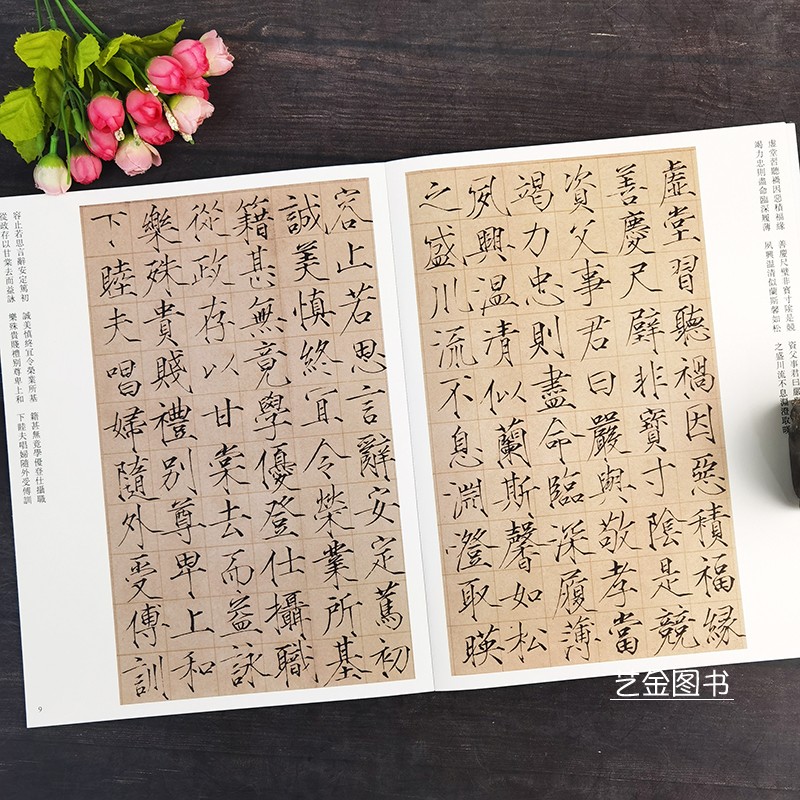 虛堂習聽禍因惡積福緣 善慶尺璧非寶寸陰是競 資父事君曰嚴
竭力忠則盡命臨深履薄 夙興溫清似蘭斯馨如松 之盛川流不息淵澄取暎
虛堂習聽禍因惡積福緣
善慶尺璧非寶寸陰是競
資父事君曰嚴與敬孝當
竭力忠則盡命臨深履薄
夙興溫清似蘭斯馨如松
之盛川流不息淵澄取暎
容止若思言辭安定篤初
誠美慎終宜令榮業所基
籍甚無竟學優登仕攝職
從政存以甘棠去而益詠
樂殊貴賤禮別尊卑上和
下睦夫唱婦隨外受傅訓
容止若思言辭安定篤初 誠美慎終宜令榮業所基 籍甚無竟學優登仕攝職
從政存以甘棠去而益詠 樂殊貴賤禮別尊卑上和 下睦夫唱婦隨外受傅訓
9
艺金图书